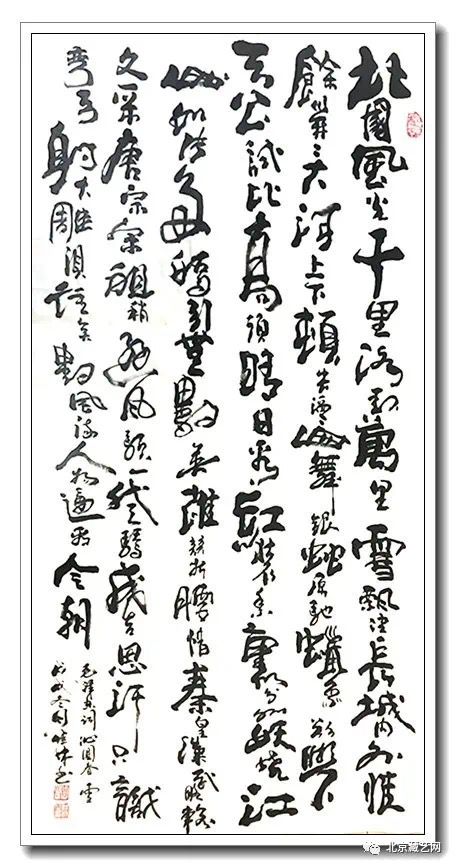 北國風光千里冰封萬里雪飄望長城内外惟
餘莽莽大河上下頓失滔滔山舞銀蛇原馳蠟象欲與
天公試比高須晴日看紅裝素裹分外妖嬈江
山如此多嬌引無數英雄競折腰惜秦皇漢武略輸
文采唐宗宋祖稍遜風騷一代天驕成吉思汗只識
彎弓射大雕俱往矣數風流人物還看今朝
毛澤東詞沁園春雪
戊戌冬月
北京藏艺网